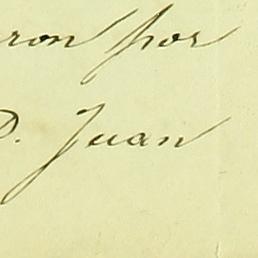 ron por
D. Juan